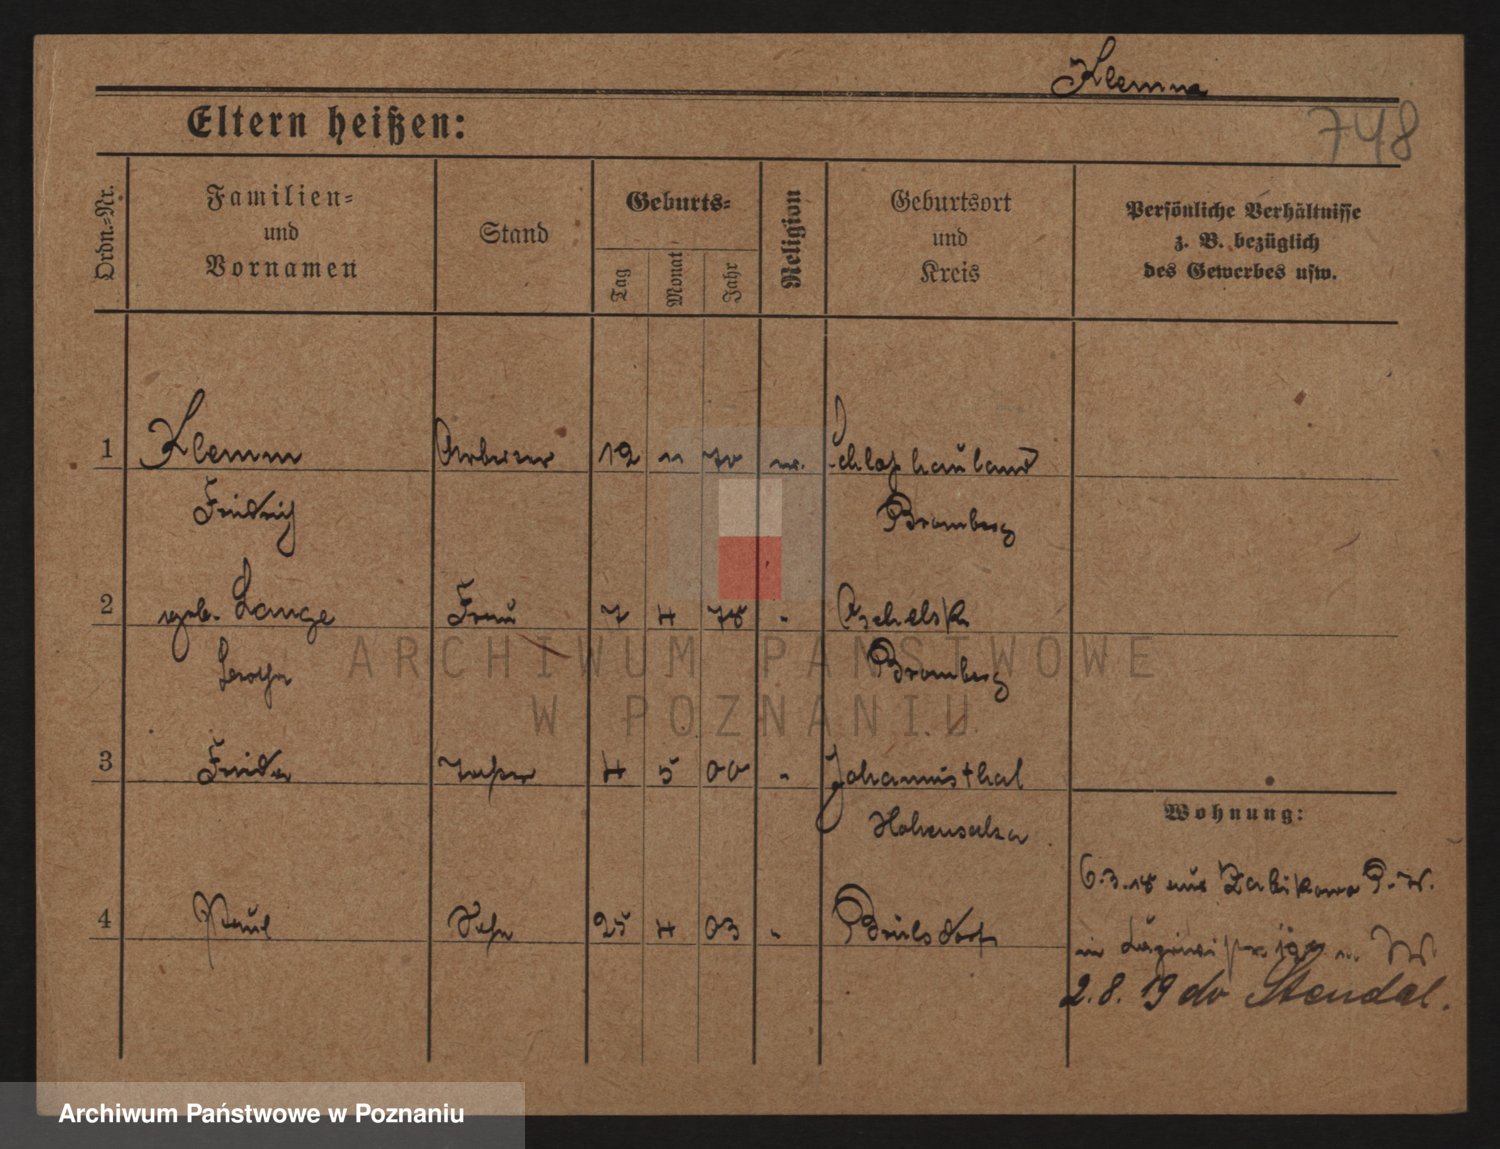 Klemm
748
Eltern heißen:
Ordn.-Nr.
Familien-
und
Vornamen
Stand
Geburts-
Tag
Monat
Jahr
Religion
Geburtsort
und
Kreis
Persönliche Verhältnisse
z. B. bezüglich
des Gewerbes usw.
1 Klemm 12 11 70
Bromberg
2 geb. Lange Frau 7 4 78 "
Bromberg
3 Frida 4 5 00 " Johannisthal
Hohensalza
Wohnung:
6.3.18 aus Zabikowo P. W.
4 Paul Sohn 25 4 03 " Brülsdorf
in
2.8.19 do Stendal.
ARCHIWUM PAŃSTWOWE
W POZNANIU
Archiwum Państwowe w Poznaniu